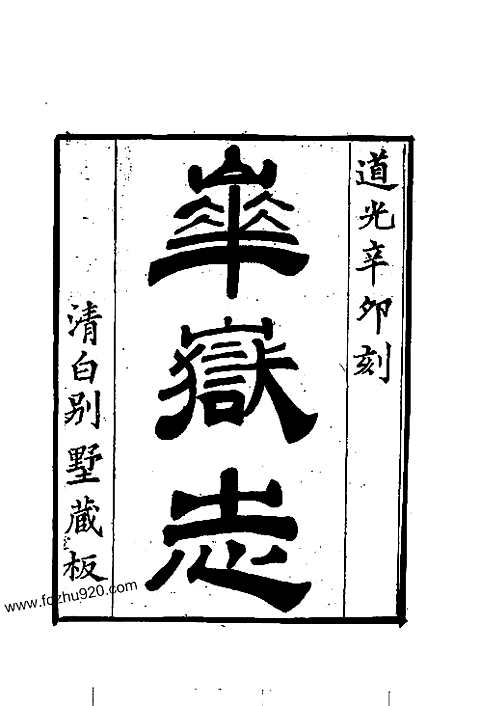 道光辛卯刻
崋嶽志
清白别墅蔵板
www.fozhu920.com